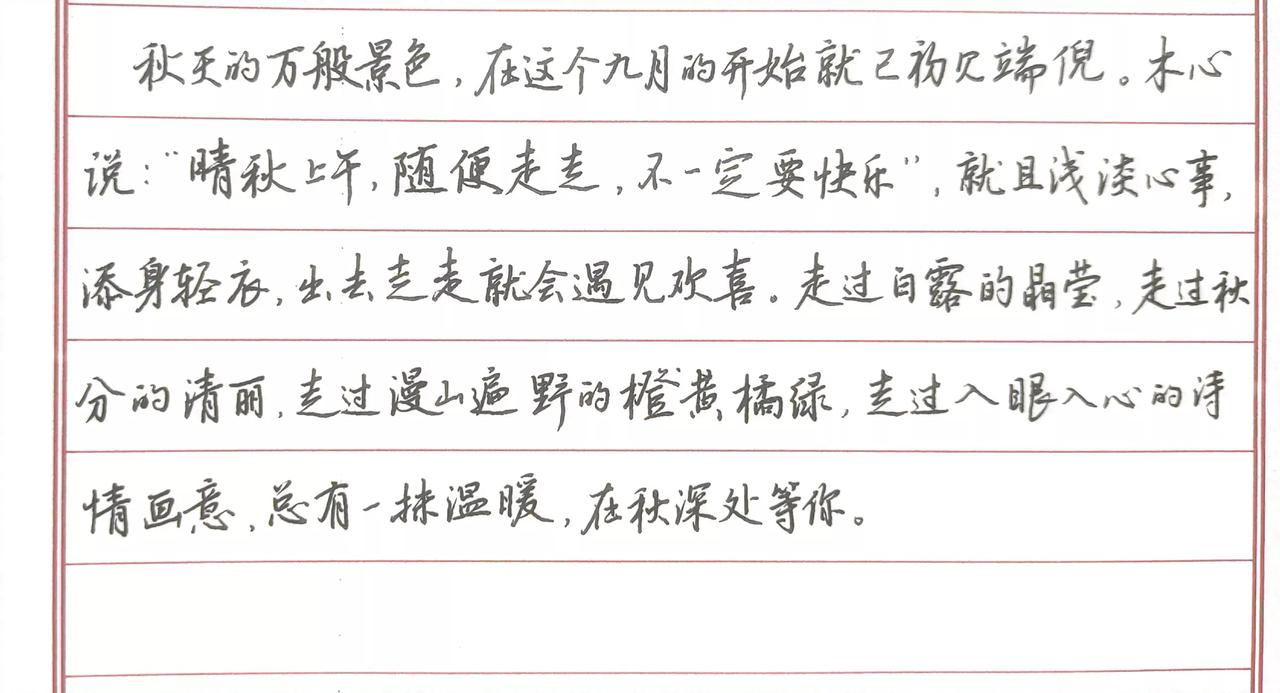 秋天的万般景色,在这个九月的开始就已初见端倪。木心
说:“晴秋上午,随便走走,不一定要快乐”,就且浅淡心事,
添身轻衣,出去走走就会遇见欢喜。走过白露的晶莹,走过秋
分的清丽,走过漫山遍野的橙黄橘绿,走过入眼入心的诗
情画意,总有一抹温暖,在秋深处等你。